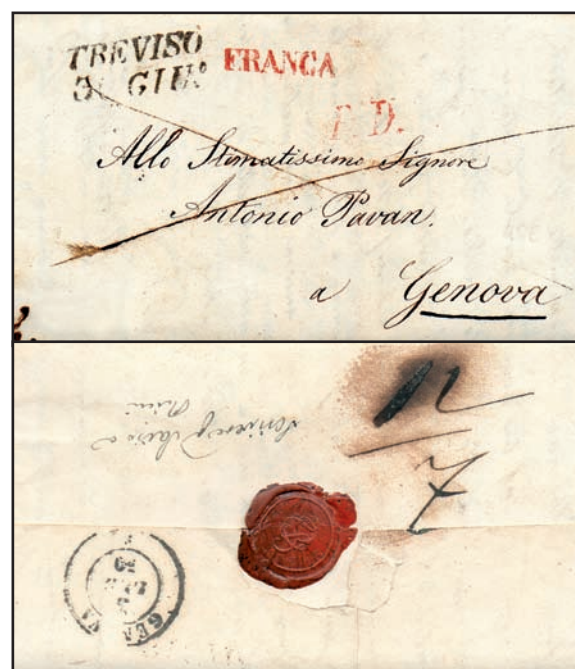 TREVISO FRANCA
GIU.°
P.D.
Allo Stimatissimo Signore
Antonio Pavan.
a Genova
12
7
GENOVA